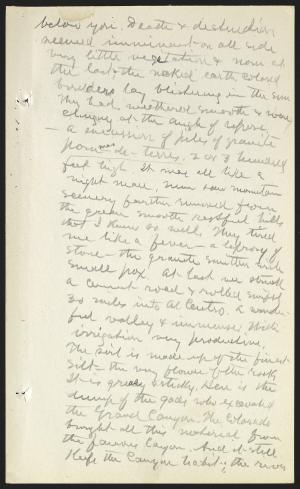 below you. Death & destruction
seemed imminent on all side
very little vegetation & now at
the last the naked earth colored
boulders lay blistering in the sun
They had weathered smooth & were
clinging at the angle of repose,
— a succession of piles of granite
2 or 3 hundred
feet high. It was all like a
night mare, never saw mountain
scenery farther removed from
the green smooth restful hills
that I knew so well. They tired
me like a fever — a leprosy of
stone — the granite smitten with
small pox. At last we struck
a cement road & rolled
30 miles into El Centro. A wonder-
ful valley & immense. With
irrigation very productive.
The soil is made up of the finest
silt — the very flower of the rock,
It is greasy & sticky. Here is the
dump of the gods who excavated
the Grand Canyon. The Colorado
brought all this material from
the famous Canyon. And it still
keeps the Canyon habit; the river